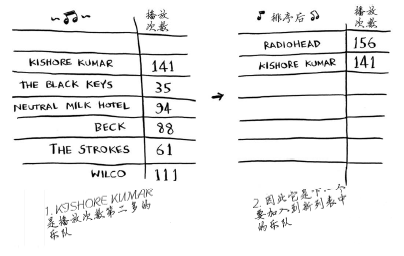 ~♫~
播放
次数
KISHORE KUMAR 141
THE BLACK KEYS 35
NEUTRAL MILK HOTEL 94
BECK 88
THE STROKES 61
WILCO 111
1. KISHORE KUMAR
是播放次数第二多的
乐队
→
♪ 排序后 ♫
播放
次数
RADIOHEAD 156
KISHORE KUMAR 141
2. 因此它是下一个
要加入到新列表中
的乐队